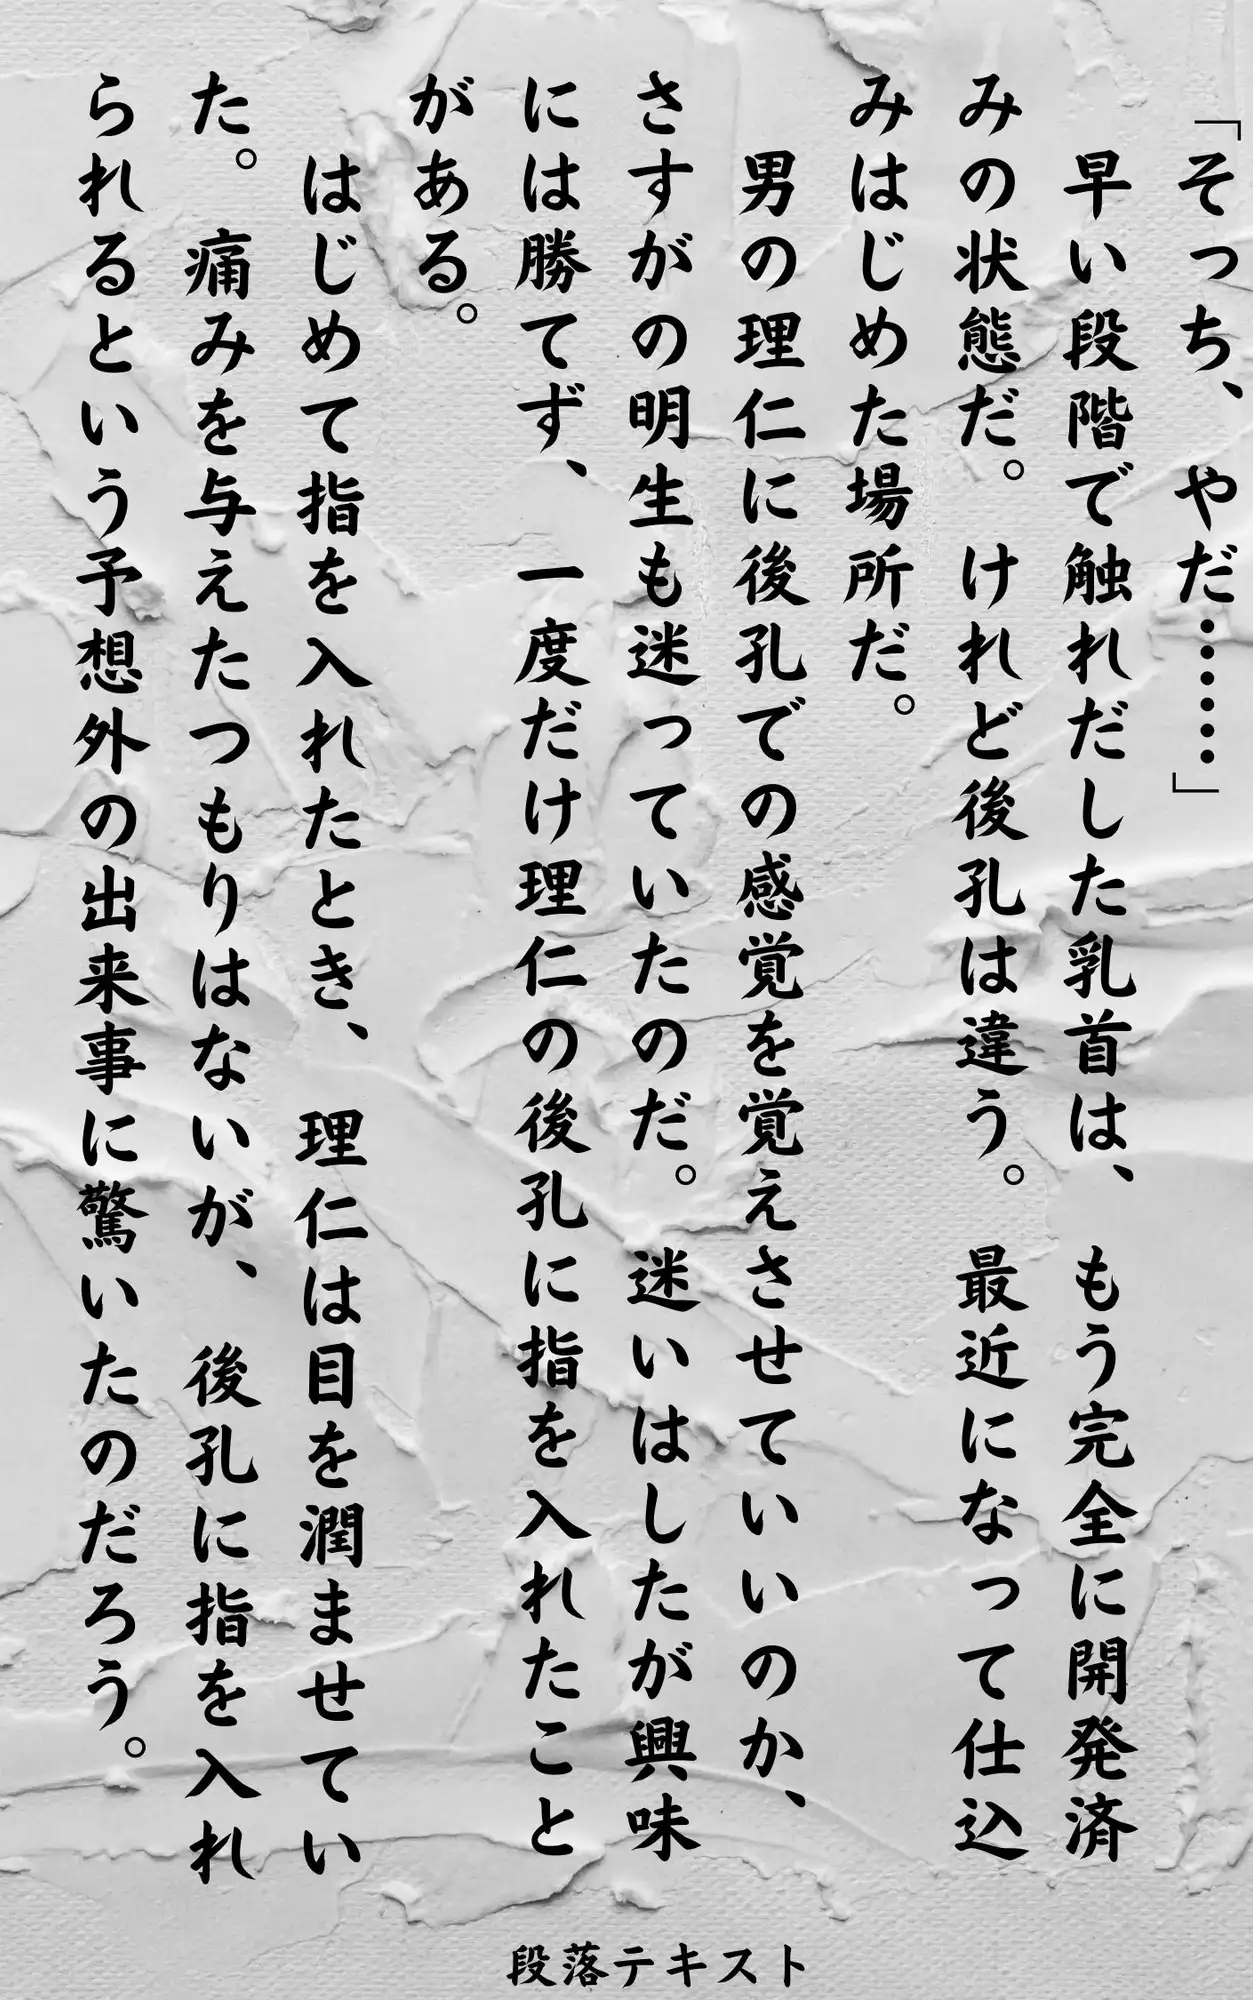 「そっち、やだ……」
早い段階で触れだした乳首は、もう完全に開発済
みの状態だ。けれど後孔は違う。最近になって仕込
みはじめた場所だ。
男の理仁に後孔での感覚を覚えさせていいのか、
さすがの明生も迷っていたのだ。迷いはしたが興味
には勝てず、一度だけ理仁の後孔に指を入れたこと
がある。
はじめて指を入れたとき、理仁は目を潤ませてい
た。痛みを与えたつもりはないが、後孔に指を入れ
られるという予想外の出来事に驚いたのだろう。
段落テキスト